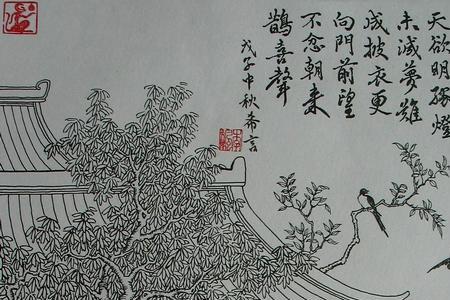 天欲明孤燈
未滅夢難
成披衣更
向門前望
不忿朝來
鵲喜聲
戊子中秋希言